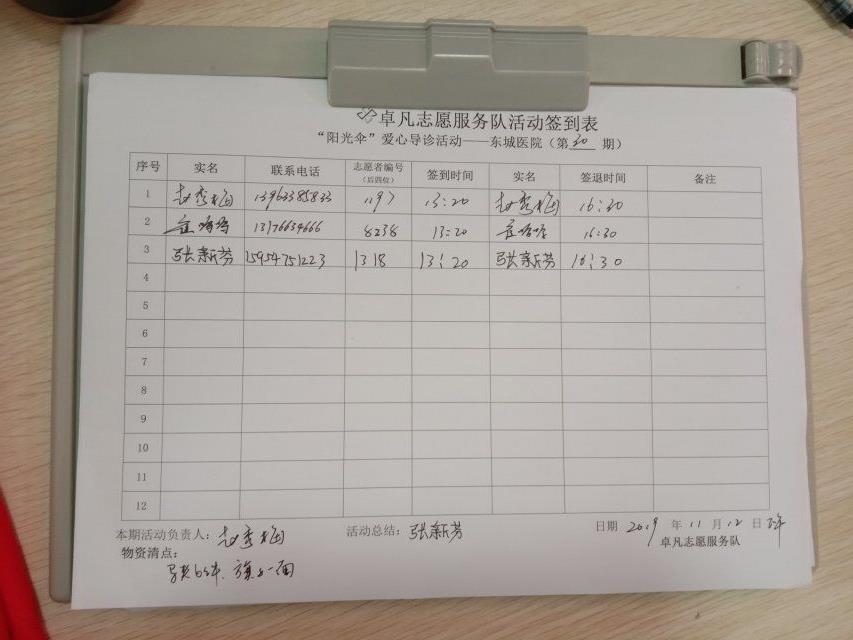 卓凡志愿服务队活动签到表
“阳光伞”爱心导诊活动——东城医院（第30期）
序号 实名 联系电话 志愿者编号（后四位） 签到时间 实名 签退时间 备注
1 赵秀梅 13963385833 1197 13:20 赵秀梅 16:30
2 13176634666 8238 13:20 16:30
3 张新芬 15954751223 1318 13:20 张新芬 16:30
4
5
6
7
8
9
10
11
12
本期活动负责人：赵秀梅 活动总结：张新芬 日期 2019 年 11 月 12 日
物资清点： 卓凡志愿服务队